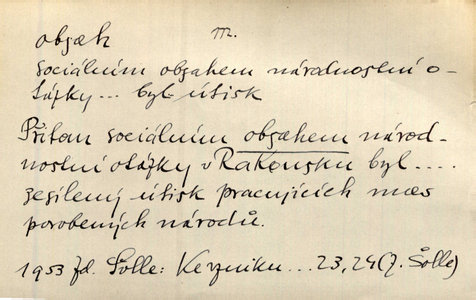 obsah m.
sociálním obsahem národnostní o-
tázky... byl útisk
Přitom sociálním obsahem národ-
nostní otázky v Rakousku byl ....
zesílený útisk pracujících mas
porobených národů.
1953 Zd. Šolle: K vzniku... 23,24 (Z. Šolle)